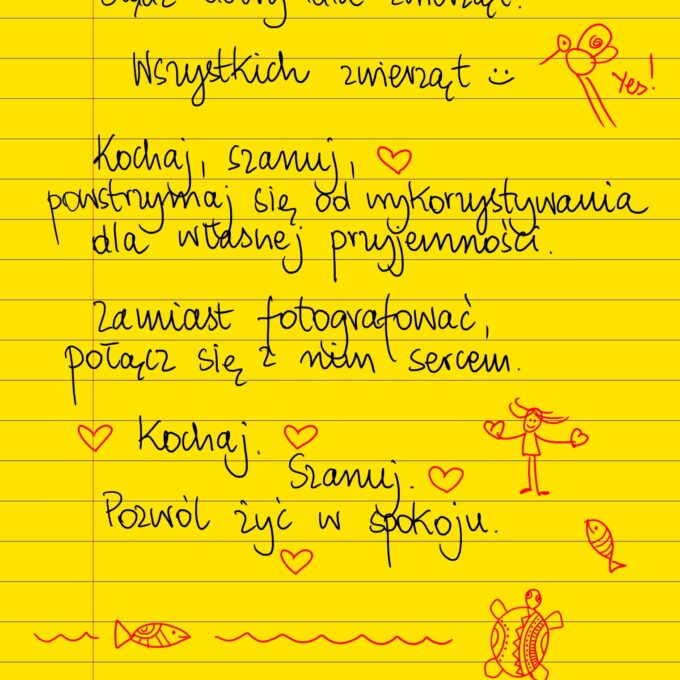 dla zwierząt.
Wszystkich zwierząt
Yes!
Kochaj, szanuj,
powstrzymaj się od wykorzystywania
dla własnej przyjemności.
Zamiast fotografować,
połącz się z nim sercem.
Kochaj.
Szanuj.
Pozwól żyć w spokoju.